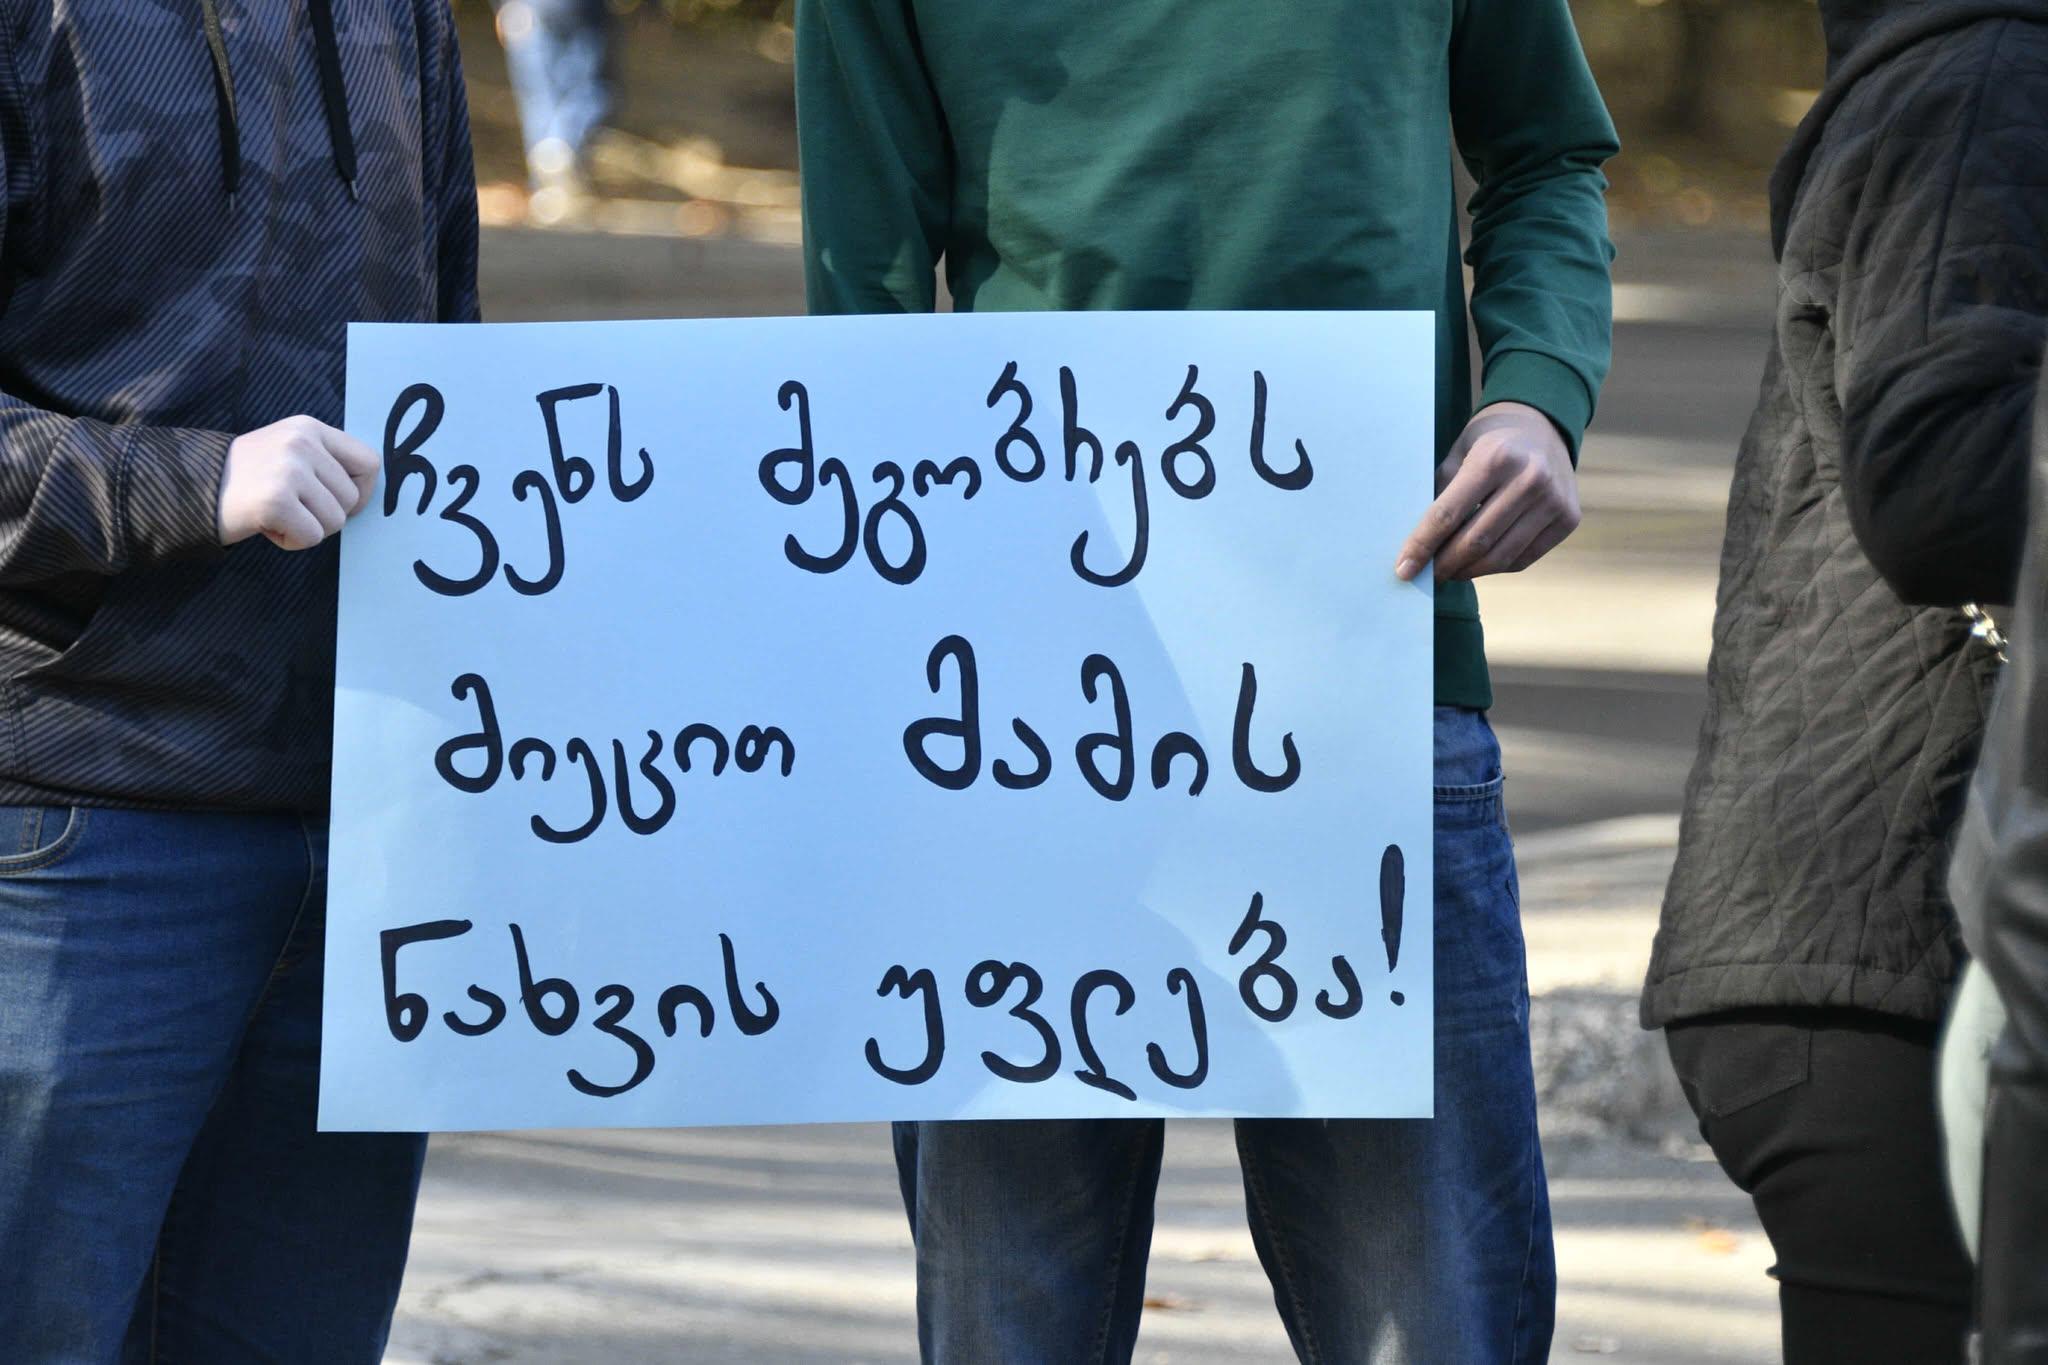 ჩვენს მეგობრებს
მიეცით მამის
ნახვის უფლება!